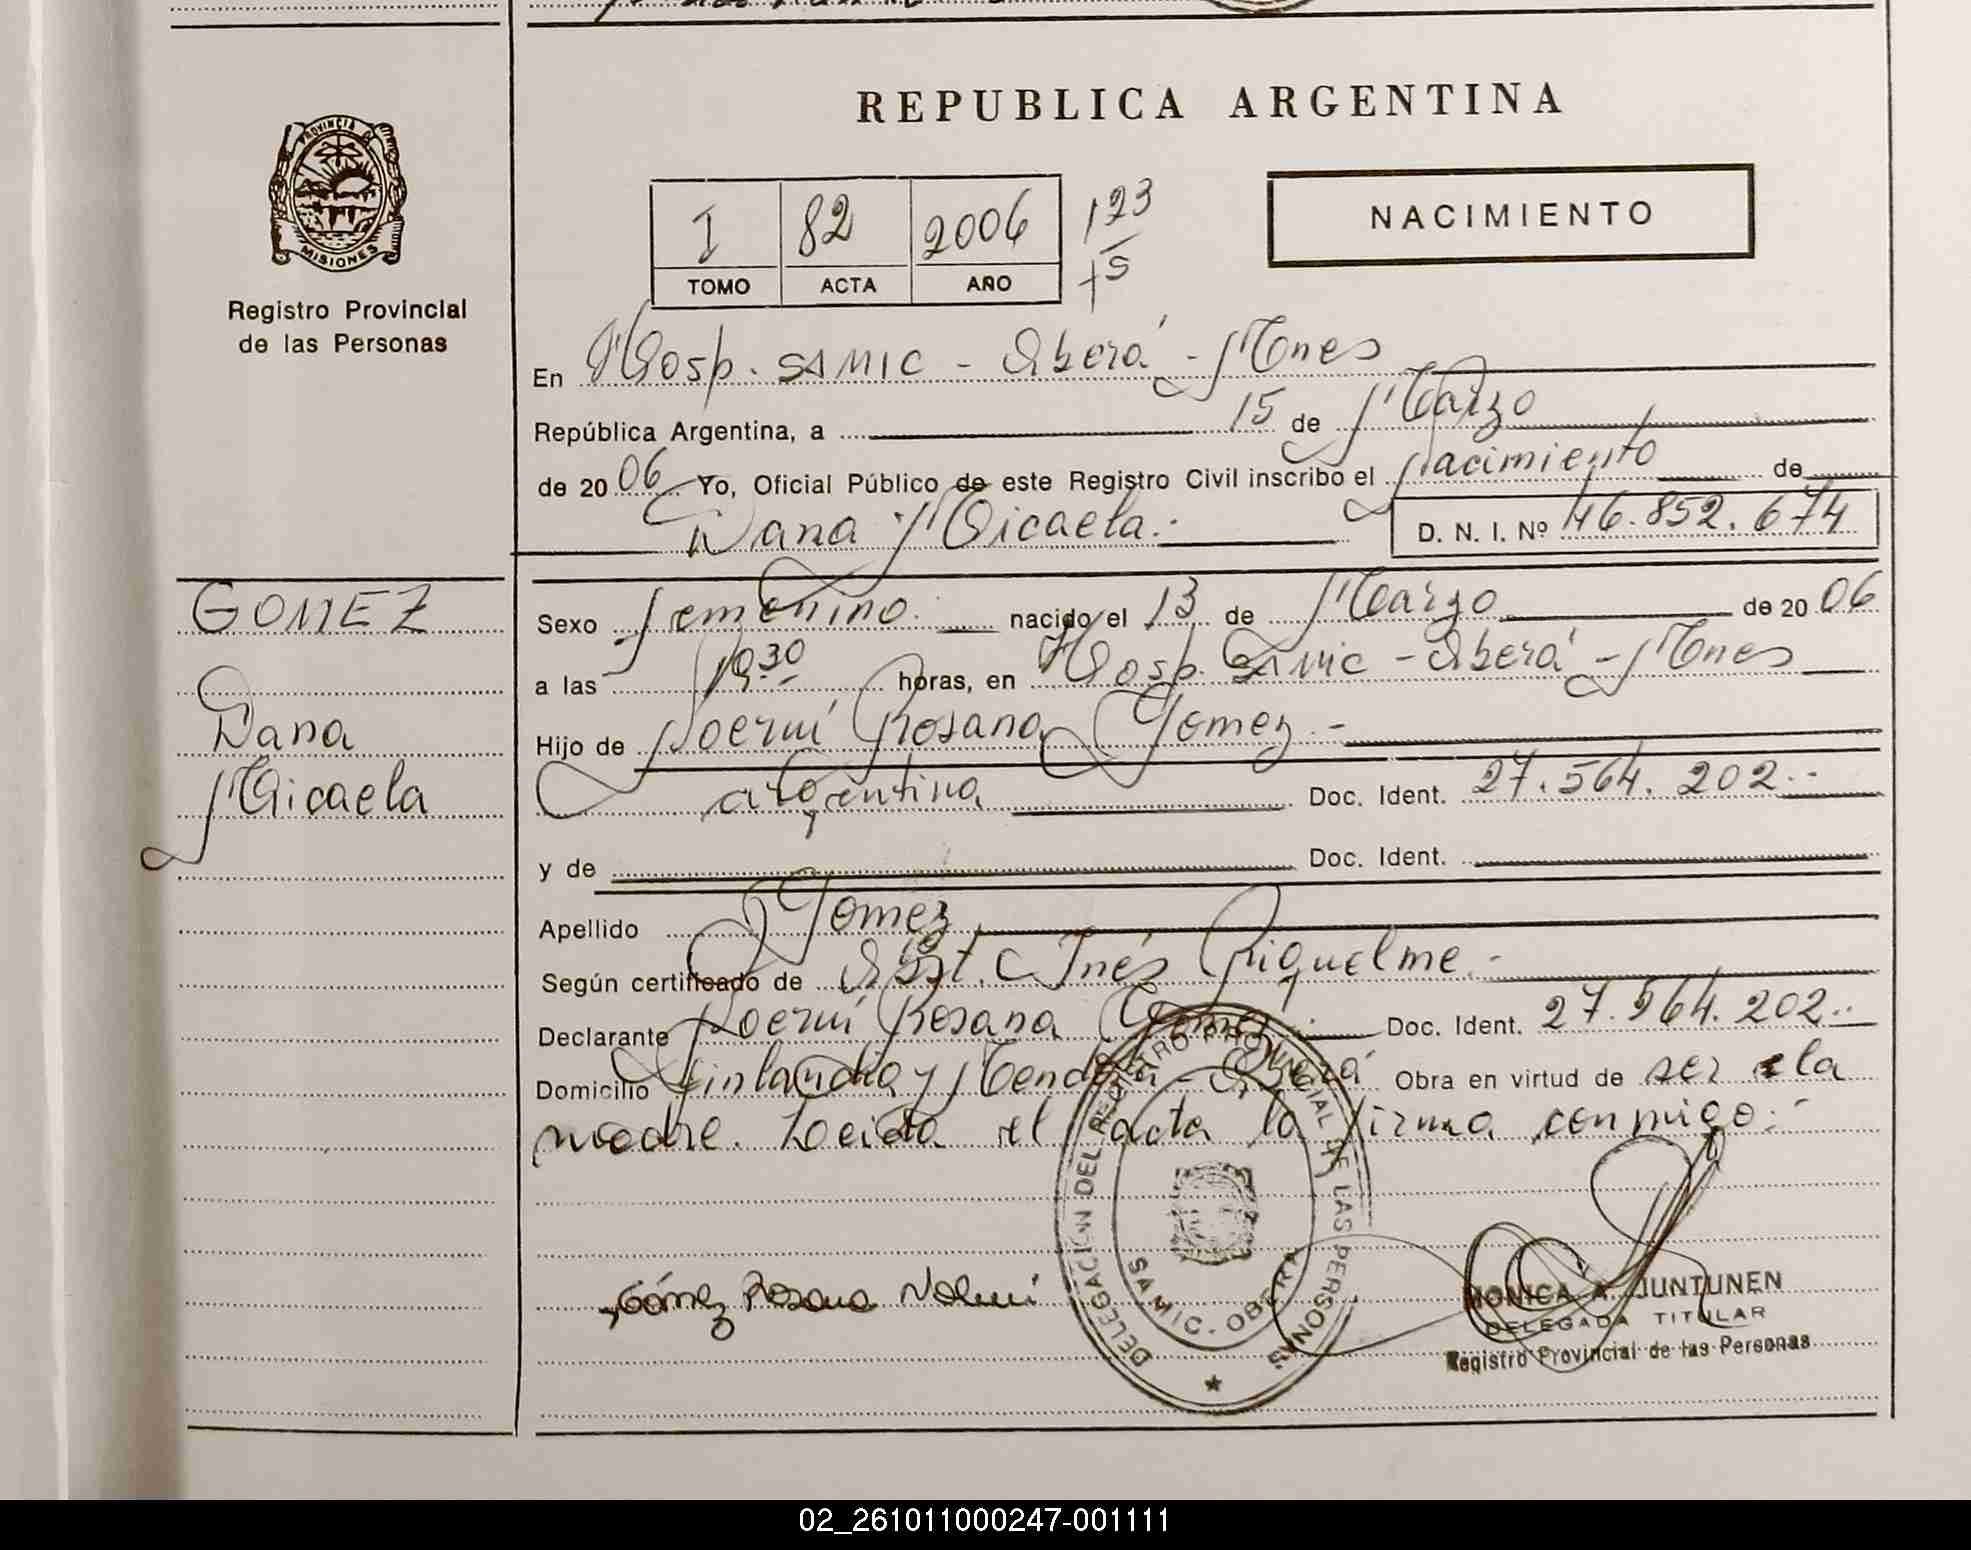 REPUBLICA ARGENTINA
PROVINCIA D
MISIONES
Registro Provincial
de las Personas
I 82 2006
TOMO ACTA AÑO
123
15
NACIMIENTO
En Hosp. SAMIC - Oberá - Mnes
República Argentina, a 15 de Marzo
de 2006 Yo, Oficial Público de este Registro Civil inscribo el Nacimiento de
Dana Micaela.- D. N. I. Nº 46.852.674
GOMEZ
Dana
Micaela
Sexo Femenino. nacido el 13 de Marzo de 2006
a las 19 30 horas, en Hosp. SAMIC - Oberá - Mnes
Hijo de Noemí Rosana Gomez.-
argentina Doc. Ident. 27.564.202.-
y de Doc. Ident.
Apellido Gomez
Según certificado de Obst. Inés Riquelme.-
Declarante Noemí Rosana Gomez.- Doc. Ident. 27.564.202.-
Domicilio Finlandia y Mendoza - Oberá Obra en virtud de ser la
madre. Leida el acta la firma conmigo.-
Gómez Rosana Noemi
DELEGACION DEL REGISTRO PROVINCIAL DE LAS PERSONAS
SAMIC. OBERA
MONICA A. JUNTUNEN
DELEGADA TITULAR
Registro Provincial de las Personas
02_261011000247-001111